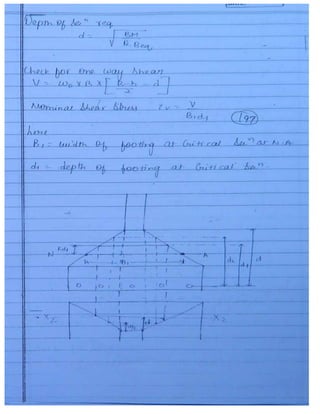 Depth of Secn req
d = √ BM / R. Beq
Check for One way Shear
V = wo x B x [ B-b / 2 - d ]
Nominal Shear Stress τv = V / B1d1
(197)
here
B1 = width of footing at Critical Secn at N-A
d1 = depth of footing at Critical Secn
N
A
d
X
X